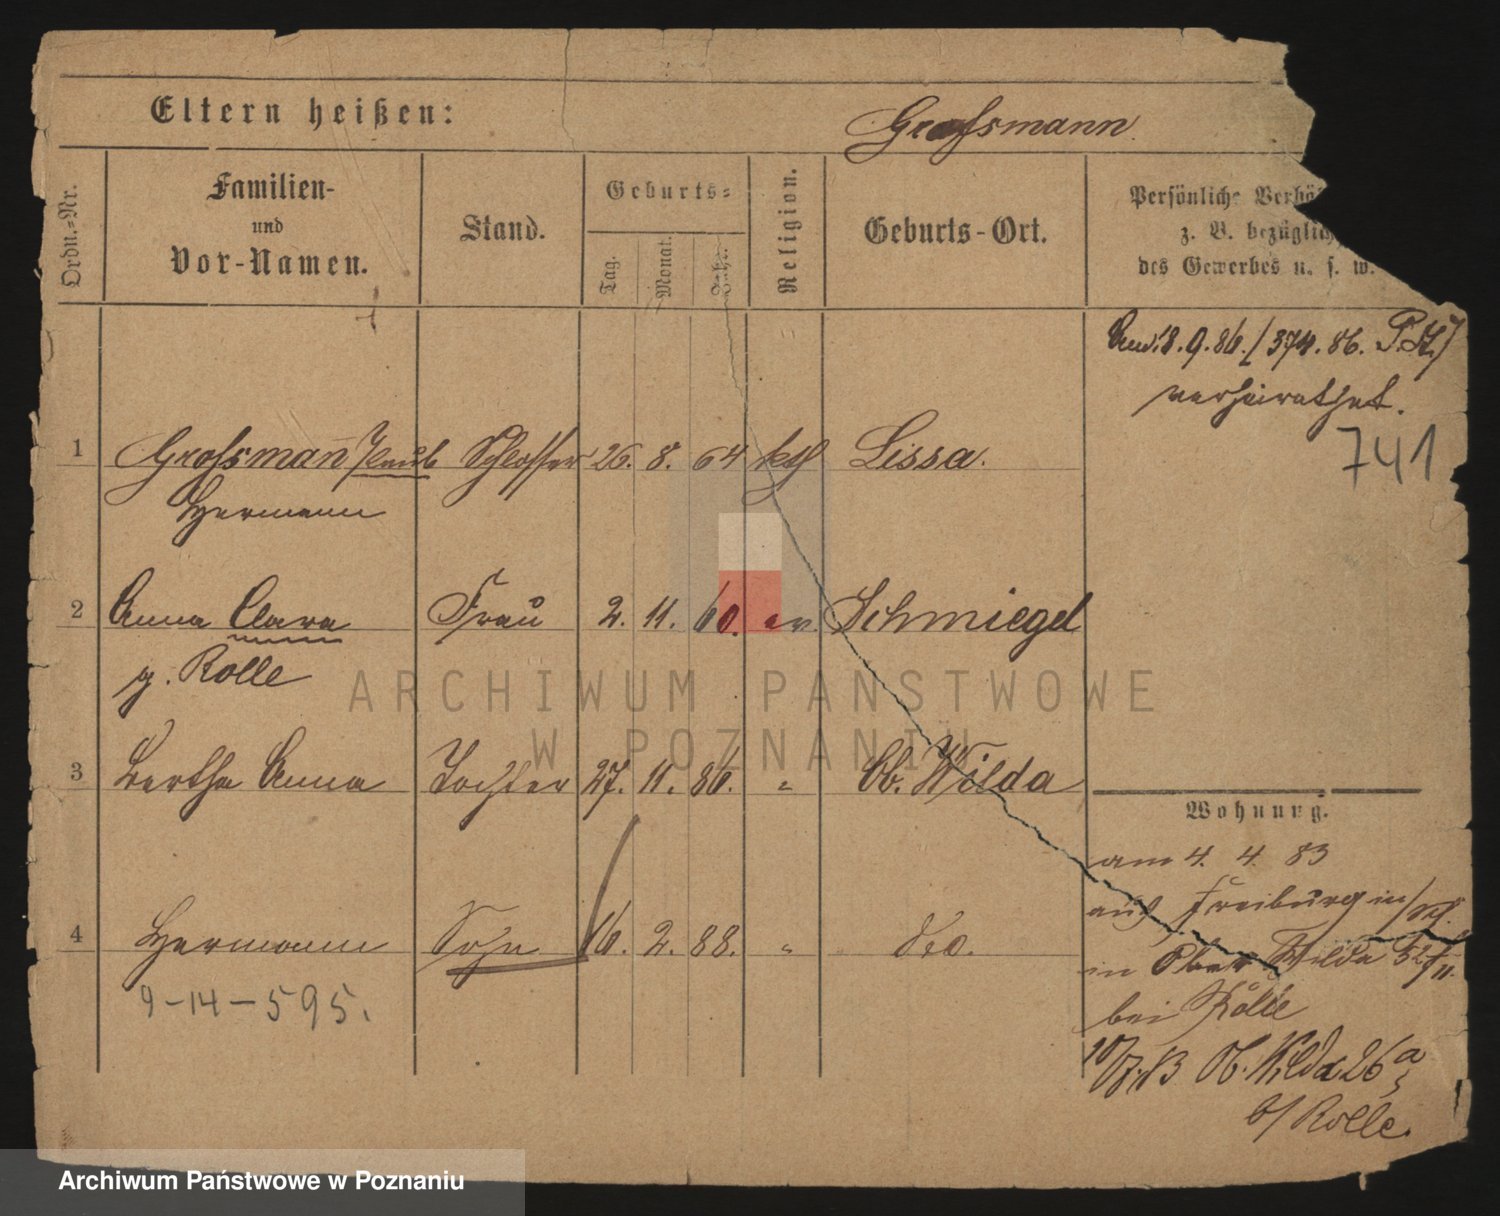 Eltern heißen:
Grossmann
Ordn.-Nr.
Familien-
und
Vor-Namen.
Stand.
Geburts-
Tag.
Monat.
Jahr.
Religion.
Geburts-Ort.
Persönliche Verhä
z. B. bezüglich
des Gewerbes u. s. w.
18.9.86. (374.86. P.St.)
verheirathet.
741
1 Grossmann Paul Schlosser 26. 8. 64 kth Lissa.
Hermann
2 Anna Clara Frau 2. 11. 60. ev. Schmiegel
g. Rolle
3 Bertha Anna Tochter 27. 11. 86. " Ob. Wilda
4 Hermann Sohn 16. 2. 88. " dto.
9-14-595.
Wohnung.
am 4. 4. 83
aus Freiburg in/Schl.
in Ober Wilda 52/11.
bei Rolle
10/7.83 Ob. Wilda 26a
b/ Rolle.
ARCHIWUM PAŃSTWOWE
W POZNANIU
Archiwum Państwowe w Poznaniu